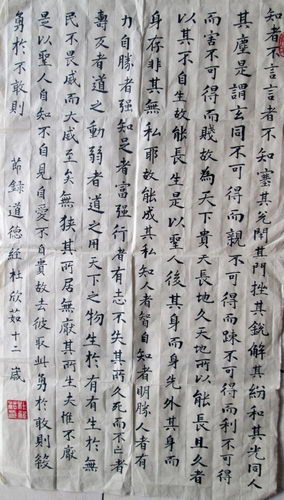 知者不言言者不知塞其兑閉其門挫其銳解其紛和其光同人
其塵是謂玄同不可得而親不可得而踈不可得而利不可得
而害不可得而賤故為天下貴天長地久天地所以能長且久者
以其不自生故能長生是以聖人後其身而身先外其身而
身存非其無私耶故能成其私知人者智自知者明勝人者有
力自勝者強知足者富强行者有志不失其所久死而不亡者
壽反者道之動弱者道之用天下之物生於有有生於無
民不畏威而大威至矣無狹其所居無厭其所生夫惟不厭
是以聖人自知不自見自愛不自貴故去彼取此勇於敢則殺
勇於不敢則
節錄道德經杜欣茹十二歲